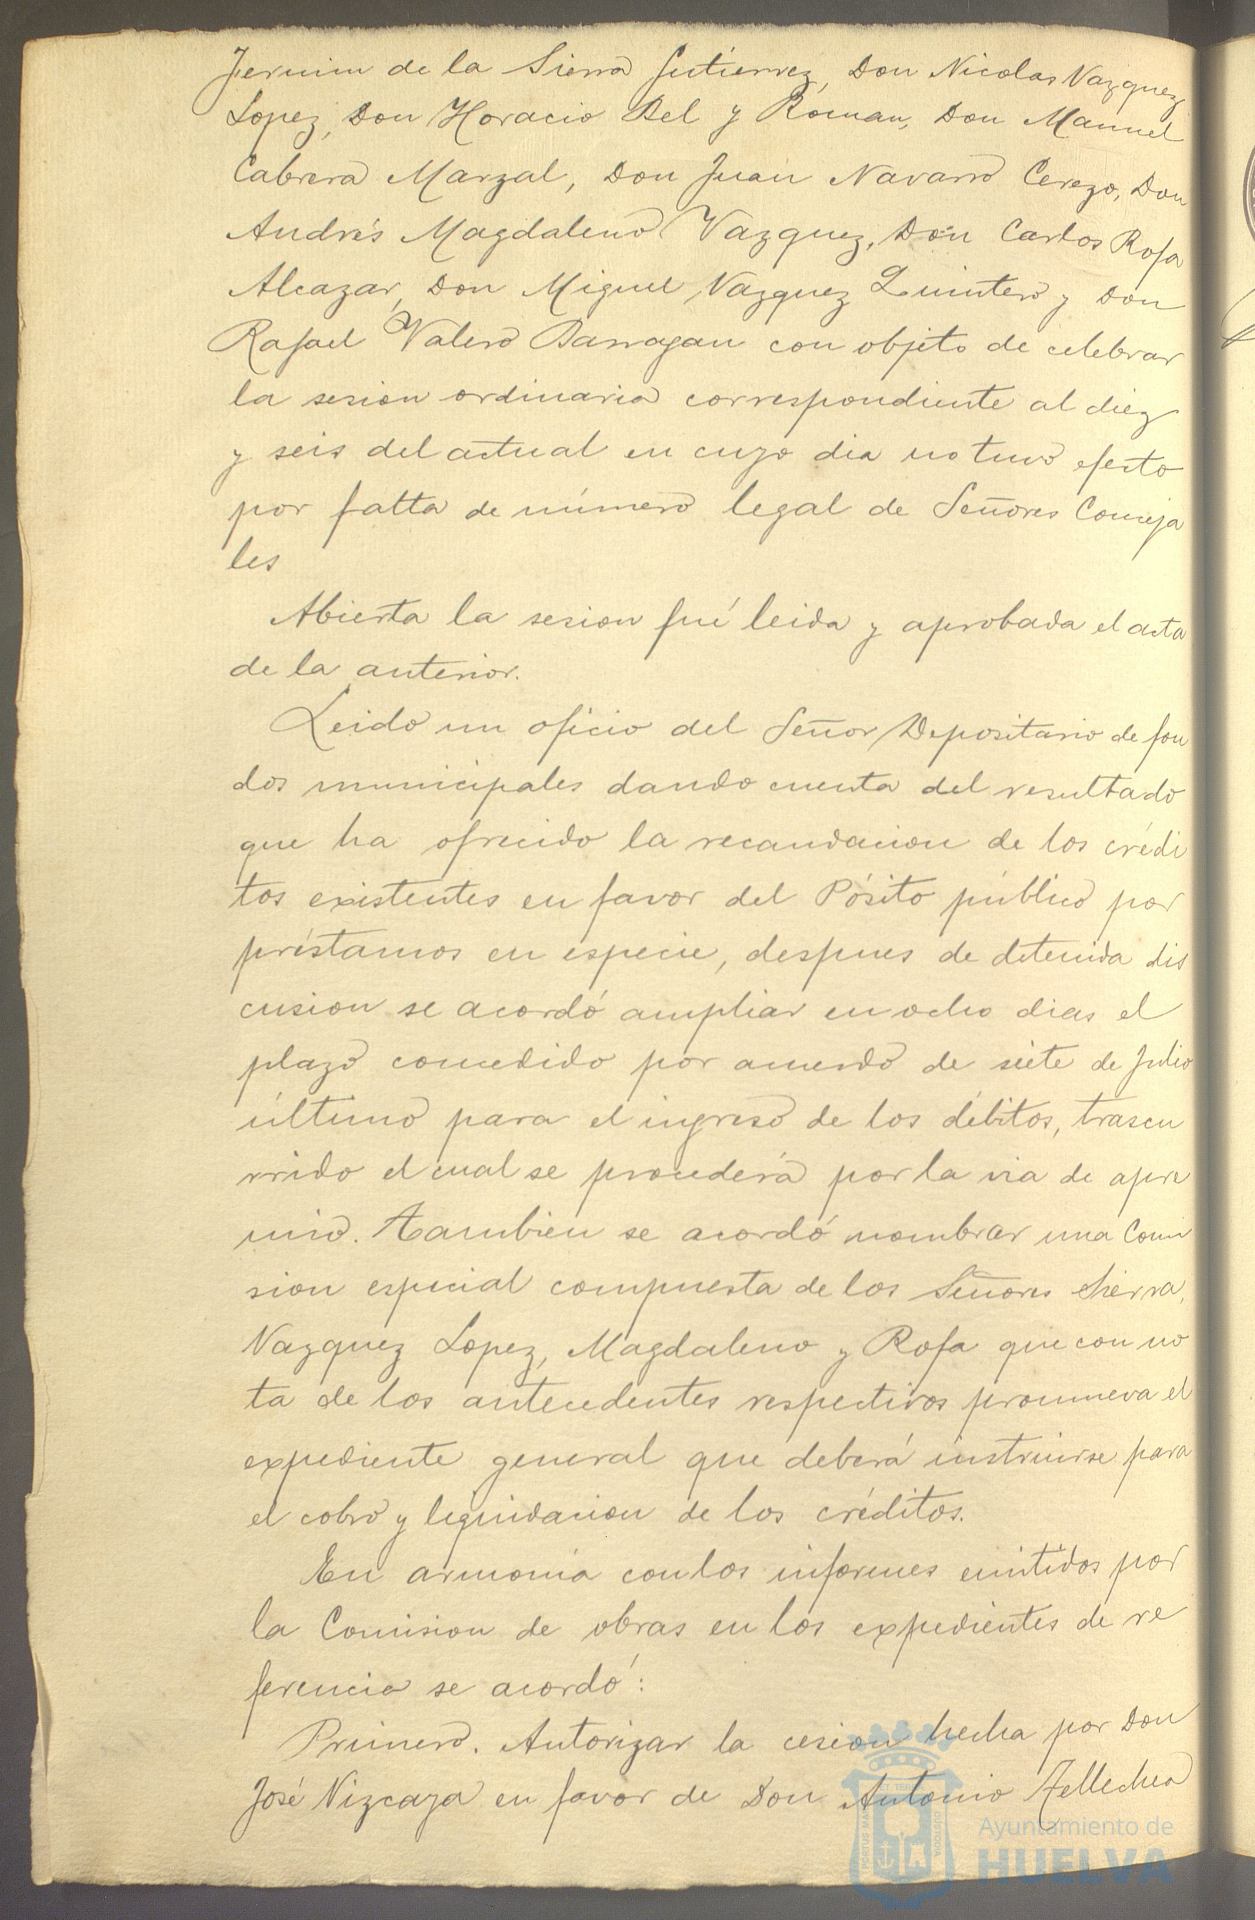 Fermin de la Sierra Gutierrez, Don Nicolas Vazquez
Lopez, Don Horacio Bel y Roman, Don Manuel
Cabrera Marzal, Don Juan Navarro Cerezo, Don
Andrés Magdaleno Vazquez, Don Carlos Rofa
Alcazar, Don Miguel Vazquez Quintero y Don
Rafael Valero Barragan con objeto de celebrar
la sesion ordinaria correspondiente al diez
y seis del actual en cuyo dia no tuvo efecto
por falta de número legal de Señores Conceja
les
Abierta la sesion fué leida y aprobada el acta
de la anterior.
Leido un oficio del Señor Depositario de fon
dos municipales dando cuenta del resultado
que ha ofrecido la recaudacion de los crédi
tos existentes en favor del Pósito público por
préstamos en especie, despues de detenida dis
cusion se acordó ampliar en ocho dias el
plazo concedido por acuerdo de siete de Julio
último para el ingreso de los débitos, trascu
rrido el cual se procederá por la via de apre
mio. Tambien se acordó nombrar una Comi
sion especial compuesta de los Señores Sierra,
Vazquez Lopez, Magdaleno y Rofa que con no
ta de los antecedentes respectivos promueva el
expediente general que deberá instruirse para
el cobro y liquidacion de los créditos.
En armonia con los informes emitidos por
la Comision de obras en los expedientes de re
ferencia se acordó:
Primero. Autorizar la cesion hecha por Don
José Vizcaya en favor de Don Antonio Tellechea
Ayuntamiento de
HUELVA